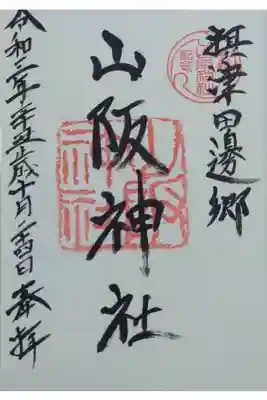 摂津田邊郷
山阪神社
令和三年辛丑歳十月二十四日 奉拝